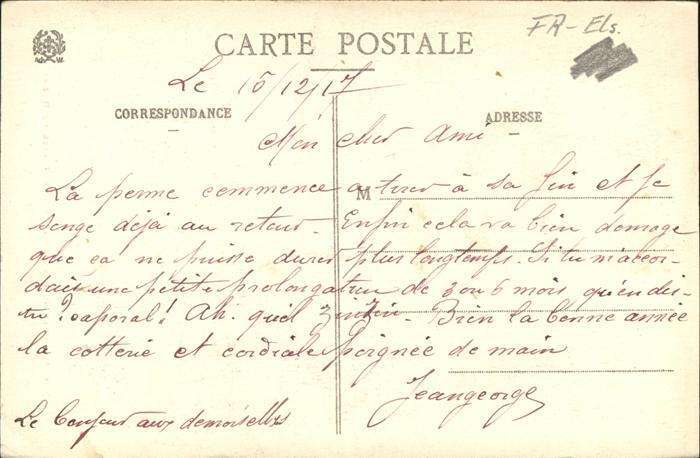 FR-Els.
CARTE POSTALE
Le 15/12/17
CORRESPONDANCE
ADRESSE
Mon cher Ami
M
La perme commence a tirer à sa fin et je
songe déjà au retour. Enfin cela va bien domage
que ça ne puisse durer plus longtemps. Si tu m'accor-
dais une petite prolongation de 3 ou 6 mois qu'en dis-
tu? caporal! Ah. quel zinzin. Bien la bonne année
la cotterie et cordiale poignée de main
Jeangeorge
Le bonjour aux demoiselles